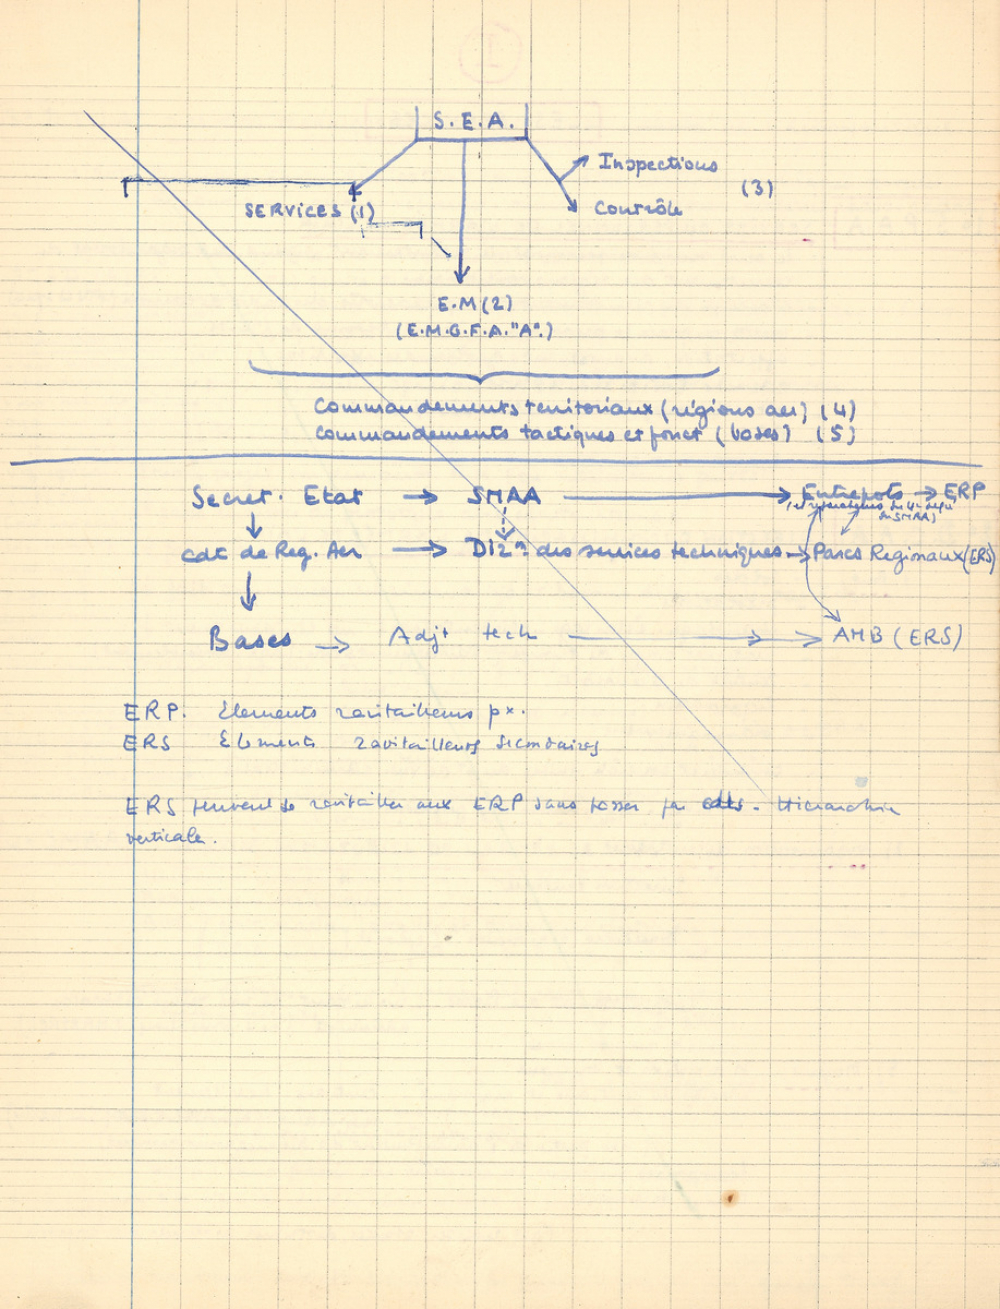 S.E.A.
Inspections
(3)
SERVICES (1)
Contrôle
E.M (2)
(E.M.G.F.A. "A".)
Commandements territoriaux (régions aer) (4)
Commandements tactiques et fonct (bases) (5)
Secret. Etat → SMAA → Entrepots → ERP
SMAA)
cdt de Reg. Aer → DI2on des services techniques → Parcs Regionaux (ERS)
Bases → Adjt tech → AMB (ERS)
ERP. Elements ravitailleurs px.
ERS Elements ravitailleurs secondaires
ERS peuvent se ravitailler aux ERP sans passer par cdts. Hierarchie
verticale.